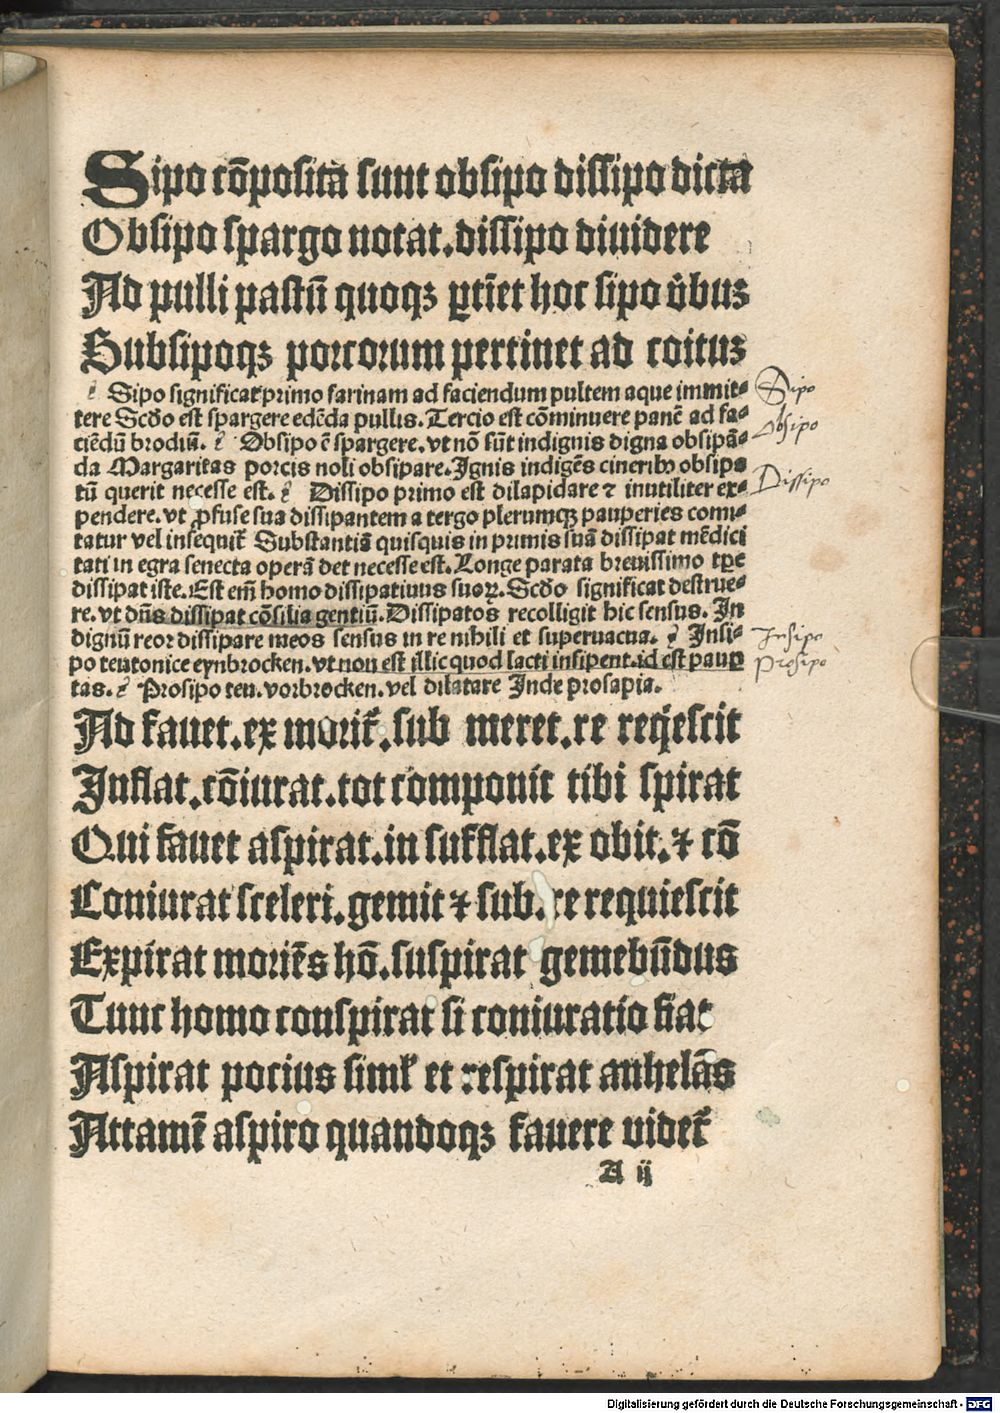 Sipo cōposita sunt obsipo dissipo dicta
Obsipo spargo notat. dissipo diuidere
Ad pulli pastū quoqꝫ ꝑtīet hoc sipo v̓bus
Subsipoqꝫ porcorum pertinet ad coitus
Sipo significat primo farinam ad faciendum pultem aque immit-
tere Scd̄o est spargere edēda pullis. Tercio est cōminuere panē ad fa-
ciēdū brodiū. Obsipo ē spargere. vt nō sūt indignis digna obsipā-
da Margaritas porcis noli obsipare. Ignis indigēs cineribꝰ obsipa
tū querit necesse est. Dissipo primo est dilapidare ⁊ inutiliter ex-
pendere. vt ꝓfuse sua dissipantem a tergo plerumqꝫ pauperies comi-
tatur vel insequit᷑ Substantiā quisquis in primis suā dissipat mēdici
tati in egra senecta operā det necesse est. Longe parata breuissimo tꝑe
dissipat iste. Est em̄ homo dissipatiuus suoꝝ. Scd̄o significat destrue-
re. vt dn̄s dissipat cōsilia gentiū. Dissipatos recolligit hic sensus. In
dignū reor dissipare meos sensus in re nihili et superuacua. Insi-
po teutonice eynbrocken. vt non est illic quod lacti insipent. id est pauꝑ
tas. Prosipo teu. vorbrocken. vel dilatare Inde prosapia.
Sipo
Obsipo
Dissipo
Insipo
Prosipo
Ad fauet. ex morit᷑. sub meret. re reqͥescit
Inflat. cōiurat. tot componit tibi spirat
Qui fauet aspirat. in sufflat. ex obit. ⁊ cō
Coniurat sceleri. gemit ⁊ sub. re requiescit
Expirat moriēs hō. suspirat gemebūdus
Tunc homo conspirat si coniuratio fiat
Aspirat pocius simĺ et respirat anhelās
Attamē aspiro quandoqꝫ fauere videt᷑
A ij
Digitalisierung gefördert durch die Deutsche Forschungsgemeinschaft - DFG